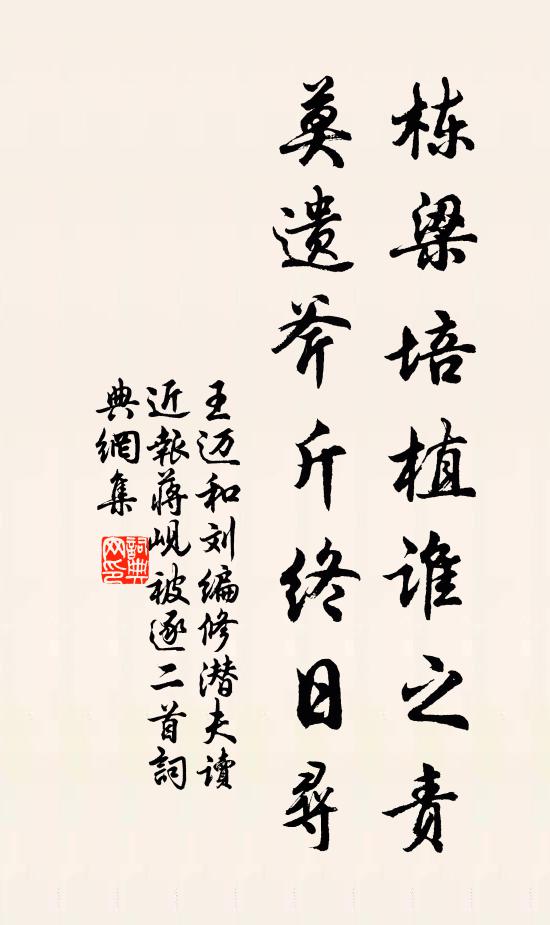 栋梁培植谁之责
莫遗斧斤终日尋
王迈和刘编修潜夫读
近報蒋岘被逐二首詞
典網集
詞典网印